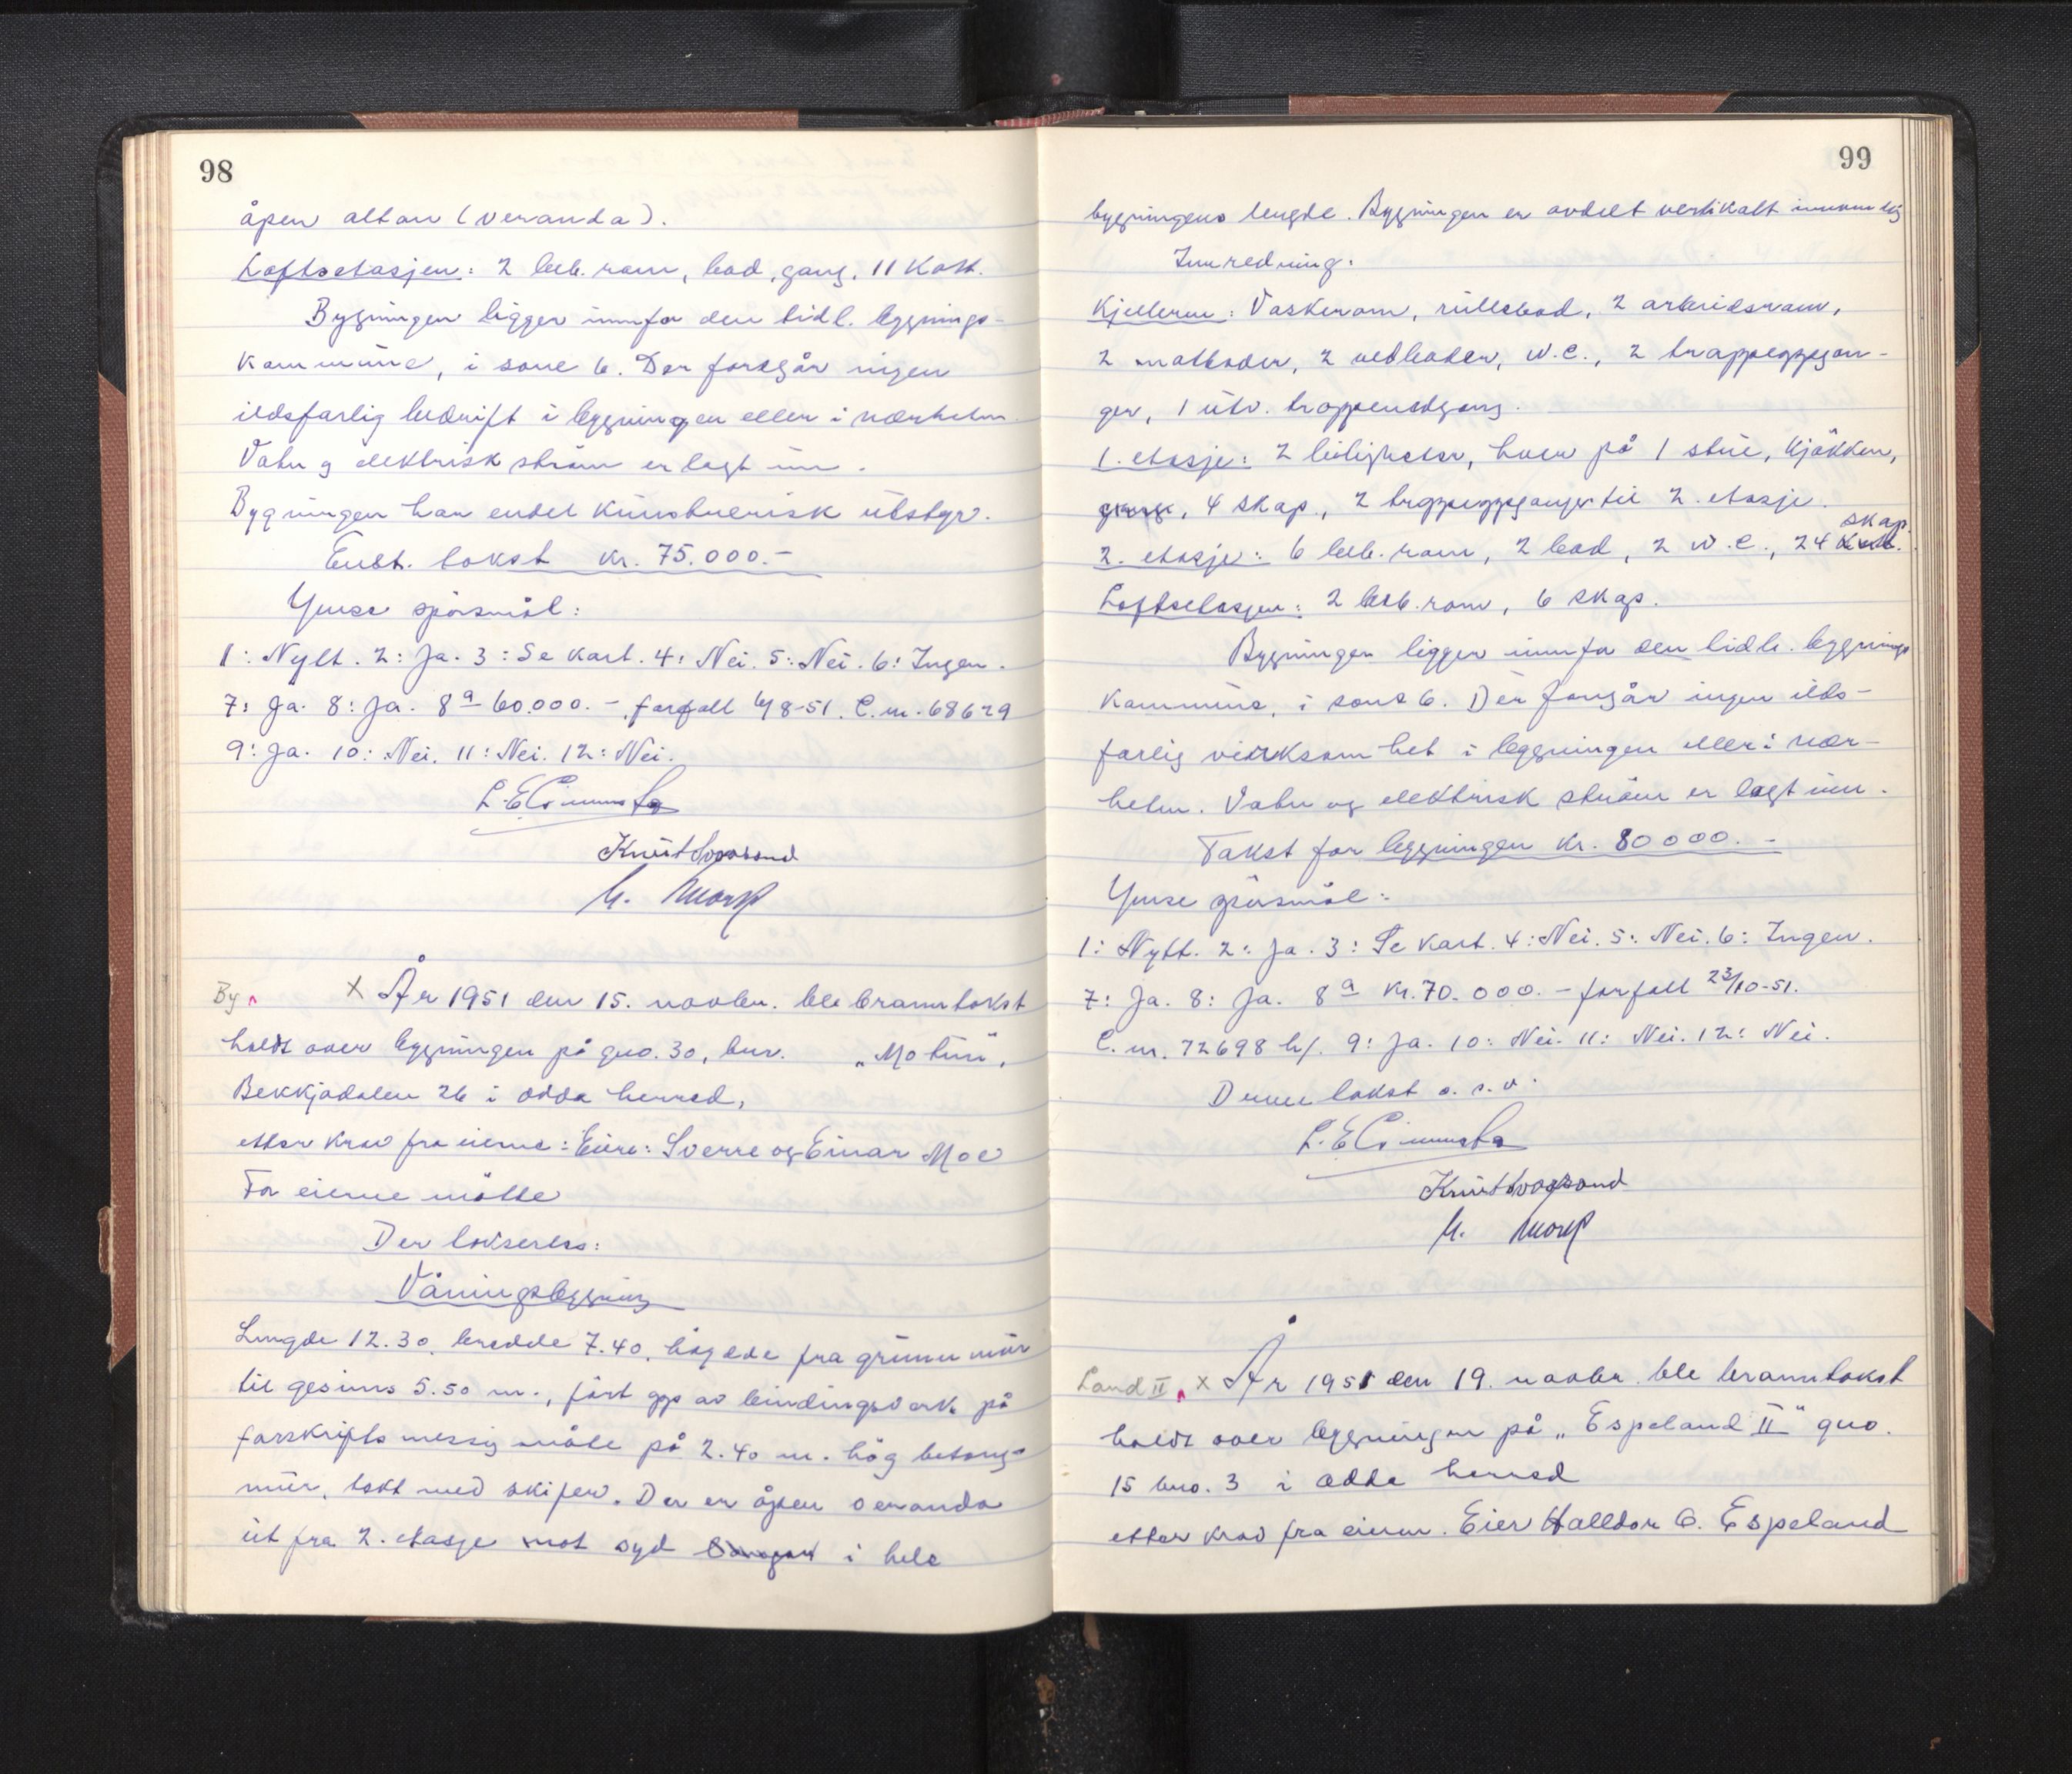 98
åpen altan (veranda).
Loftsetasjen: 2 beb. rom, bad, gang, 11 Kott.
Bygningen ligger innfor den tidl. bygnings-
kommune, i sone 6. Der foregår ingen
ildsfarlig bedrift i bygningen eller i nærheten.
Vatn og elektrisk strøm er lagt inn.
Bygningen har endel kunstnerisk utstyr.
Enst. takst kr. 75.000.-
Ymse spörsmål:
1: Nytt. 2: Ja. 3: Se kart. 4: Nei. 5: Nei. 6: Ingen.
7: Ja. 8: Ja. 8a 60.000.- forfall 4/8-51. C.nr. 68629
9: Ja. 10: Nei. 11: Nei. 12: Nei.
Knut
M. Mork
By x År 1951 den 15. novbr. ble branntakst
holdt over bygningen på gno. 30, bnr. „Motun",
Bekkjadalen 26 i Odda herred,
etter krav fra eierne: Eiere: Sverre og Einar Moe
For eierne møtte
Der takseres:
Våningsbygning
Lengde 12.30, bredde 7.40, høgde fra grunnmur
til gesims 5.50 m., fört opp av bindingsverk på
forskriftsmessig måte på 2.40 m. høg betong-
mur, tekt med skifer. Der er åpen veranda
ut fra 2. etasje mot syd i hele
99
bygningens lengde. Bygningen er avdelt vertikalt innvendig
Innredning:
Kjelleren: Vaskerom, rullebod, 2 arbeidsrom,
2 matboder, 2 vedboder, w.c., 2 trappeoppgan-
ger, 1 utv. trappenedgang.
1. etasje: 2 leiligheter, hver på 1 stue, kjökken,
gang, 4 skap, 2 trappeoppganger til 2. etasje.
skap.
2. etasje: 6 beb. rom, 2 bad, 2 w.c., 24 Kott.
Loftsetasjen: 2 beb. rom, 6 skap.
Bygningen ligger innfor den tidl. bygnings
kommune, i sone 6. Der foregår ingen ilds-
farlig virksomhet i bygningen eller i nær-
heten. Vatn og elektrisk strøm er lagt inn.
Takst for bygningen kr. 80000.-
Ymse spörsmål:
1: Nytt. 2: Ja. 3: Se kart. 4: Nei. 5: Nei. 6: Ingen.
7: Ja. 8: Ja. 8a Kr. 70.000.- forfall 23/10-51.
C.nr. 72698 b/. 9: Ja. 10: Nei. 11: Nei. 12: Nei.
Denne takst o.s.v.
Knut
M. Mork
Land II x År 1951 den 19. novbr. ble branntakst
holdt over bygningen på „Espeland II" gno.
15 bno. 3 i Odda herred
etter krav fra eieren. Eier Halldor O. Espeland